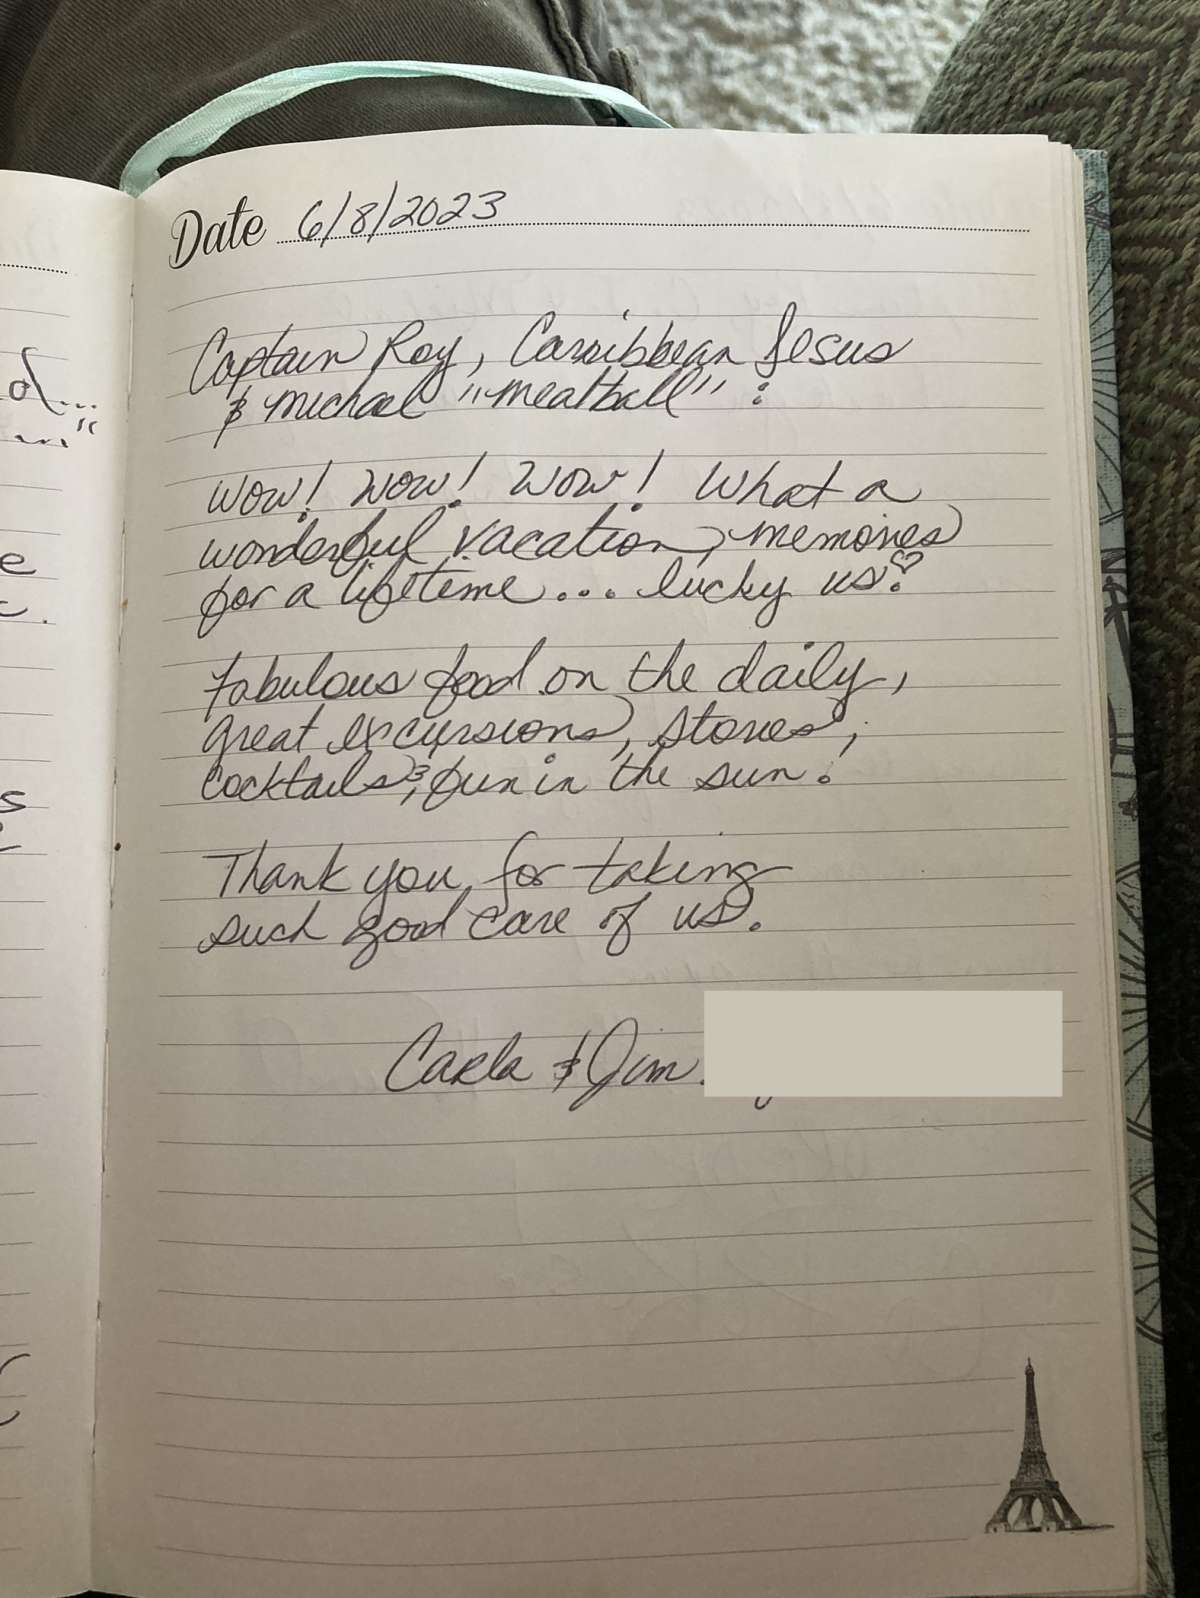 Date 6/8/2023
Captain Roy, Carribbean Jesus
& Michael "Meatball" :
Wow! Wow! Wow! What a
wonderful vacation, memories
for a lifetime... lucky us!
Fabulous food on the daily,
great excursions, stories,
cocktails, & fun in the sun!
Thank you for taking
such good care of us.
Carla & Jim